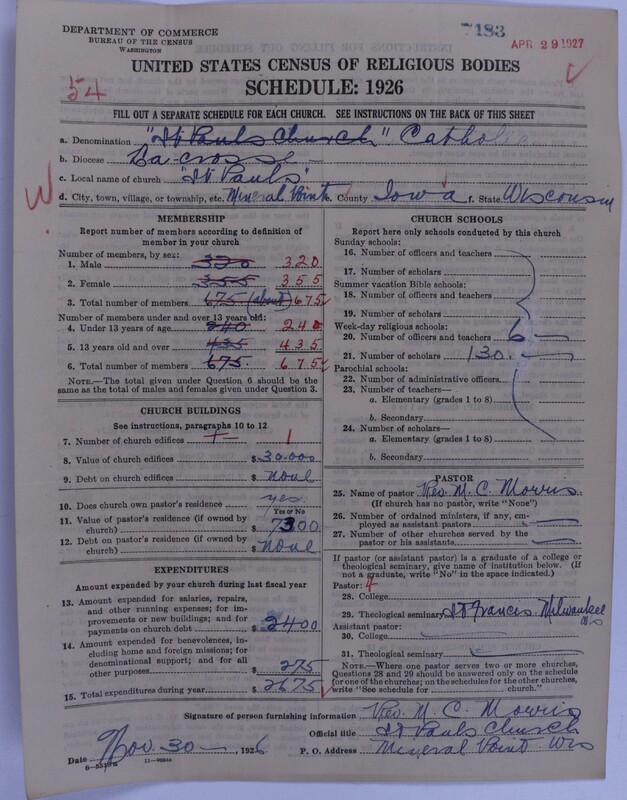 DEPARTMENT OF COMMERCE
BUREAU OF THE CENSUS
WASHINGTON
7183
APR 29 1927
UNITED STATES CENSUS OF RELIGIOUS BODIES
SCHEDULE: 1926
54
FILL OUT A SEPARATE SCHEDULE FOR EACH CHURCH. SEE INSTRUCTIONS ON THE BACK OF THIS SHEET
a. Denomination "St Pauls Church" Catholic
b. Diocese La-crosse
c. Local name of church "St Pauls"
W
d. City, town, village, or township, etc. Mineral Point e. County Iowa f. State Wisconsin
MEMBERSHIP
Report number of members according to definition of
member in your church
Number of members, by sex:
1. Male 320 320
2. Female 355 355
3. Total number of members 675 (about) 675
Number of members under and over 13 years old:
4. Under 13 years of age 240 240
5. 13 years old and over 435 435
6. Total number of members 675 675
NOTE.—The total given under Question 6 should be
same as the total of males and females given under Question 3.
CHURCH BUILDINGS
See instructions, paragraphs 10 to 12
7. Number of church edifices 1
8. Value of church edifices $30.000
9. Debt on church edifices $ none
10. Does church own pastor's residence yes
Yes or No
11. Value of pastor's residence (if owned by
church) $7300
12. Debt on pastor's residence (if owned by
church) $ none
EXPENDITURES
Amount expended by your church during last fiscal year
13. Amount expended for salaries, repairs,
and other running expenses; for im-
provements or new buildings; and for
payments on church debt $2400
14. Amount expended for benevolences, in-
cluding home and foreign missions; for
denominational support; and for all
other purposes $275
15. Total expenditures during year $2675
CHURCH SCHOOLS
Report here only schools conducted by this church
Sunday schools:
16. Number of officers and teachers
17. Number of scholars
Summer vacation Bible schools:
18. Number of officers and teachers
19. Number of scholars
Week-day religious schools:
20. Number of officers and teachers 6
21. Number of scholars 130
Parochial schools:
22. Number of administrative officers
23. Number of teachers—
a. Elementary (grades 1 to 8)
b. Secondary
24. Number of scholars—
a. Elementary (grades 1 to 8)
b. Secondary
PASTOR
25. Name of pastor Rev. M. C. Morris
(If church has no pastor, write "None")
26. Number of ordained ministers, if any, em-
ployed as assistant pastors
27. Number of other churches served by the
pastor or his assistants
If pastor (or assistant pastor) is a graduate of a college or
theological seminary, give name of institution below. (If
not a graduate, write "No" in the space indicated.)
Pastor: 4
28. College
29. Theological seminary St Francis Milwaukee Wis
Assistant pastor:
30. College
31. Theological seminary
NOTE.—Where one pastor serves two or more churches,
Questions 28 and 29 should be answered only on the schedule
for one of the churches; on the schedules for the other churches,
write "See schedule for church."
Signature of person furnishing information Rev. M. C. Morris
Official title St Pauls Church
Date Nov. 30, 1926 P. O. Address Mineral Point Wis